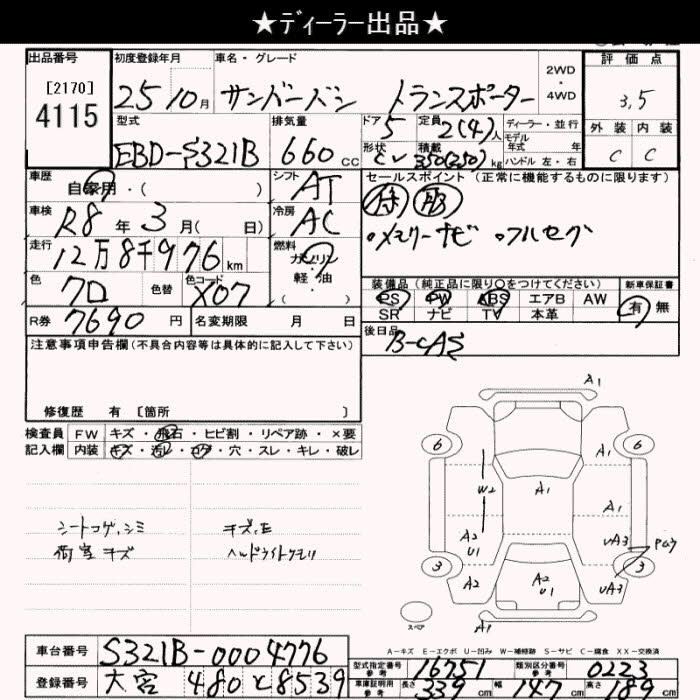 ★ディーラー出品★
出品番号 初度登録年月 車名・グレード 2WD・4WD 評価点
[2170]
4115
25 10月 サンバーバン トランスポーター 3.5
型式 排気量 ドア 定員 ディーラー・並行 外装 内装
EBD-S321B 660cc 5 2(4)人 モデル年式 年 C C
形状 積載 ハンドル 左・右
CV 350(250)kg
車歴 自家用・( ) シフト AT セールスポイント (正常に機能するものに限ります)
車検 R8年3月( 日) 冷房 AC
・メモリーナビ ・フルセグ
走行 12万8千976km 燃料 ガソリン・軽・油・( )
色 色替 色コード X07
装備品 (純正品に限り○をつけてください) 新車保証書
PS PW ABS エアB AW 有 無
SR ナビ TV 本革
R券 7690円 名変期限 月 日
後日品 B-CAS
注意事項申告欄(不具合内容等は具体的に記入して下さい)
修復歴 有 [箇所 ]
検査員 FW キズ・飛石・ヒビ割・リペア跡・×要
記入欄 内装 キズ・汚レ・コゲ・穴・スレ・キレ・破レ
シートコゲ、シミ
荷室キズ
キズ、E
ヘッドライトクモリ
A1
6 6
A1
W2 A1
A1
A2 U1
UA3
3 3
A2 A2 U1 UA3
スペア A1
A-キズ E-エクボ U-凹み W-補修跡 S-サビ C-腐食 XX-交換済
車台番号 S321B-0004776
型式指定番号 参考 16751 類別区分番号 参考 0223
登録番号 大宮 480 と 8539
車庫証明用 参考 長さ 339cm 幅 147cm 高さ 189cm